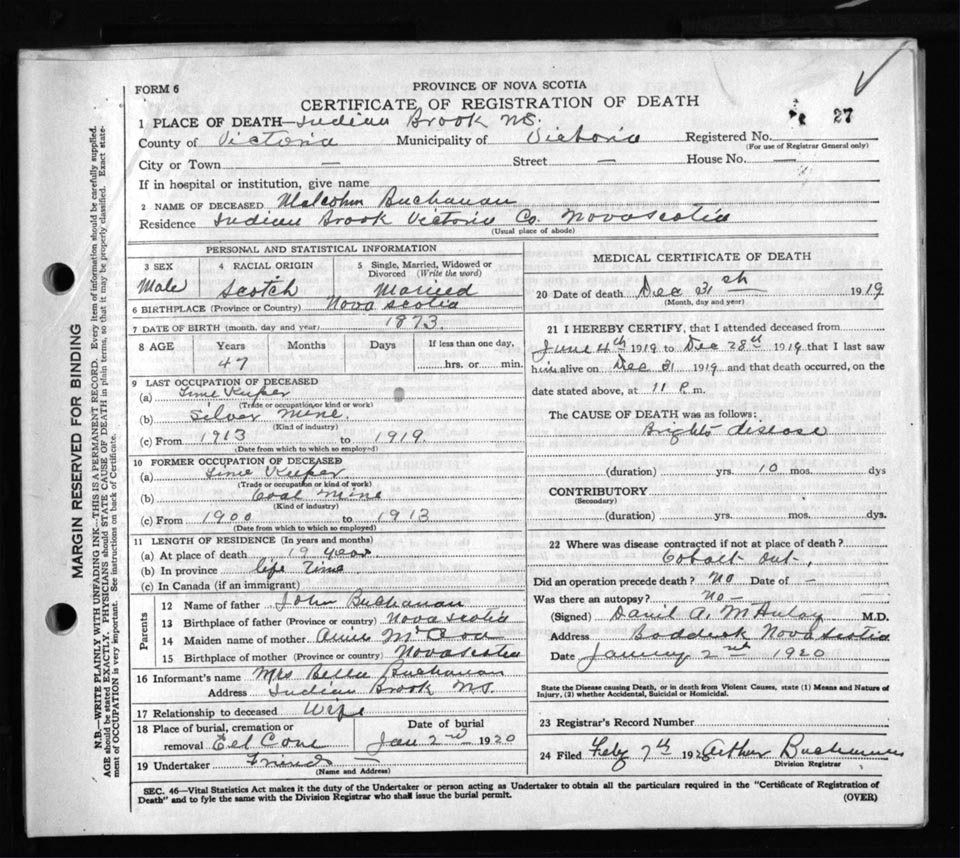 FORM 6
PROVINCE OF NOVA SCOTIA
CERTIFICATE OF REGISTRATION OF DEATH
1 PLACE OF DEATH—Indian Brook NS.
County of Victoria Municipality of Victoria Registered No. 27
(For use of Registrar General only)
City or Town — Street — House No. —
If in hospital or institution, give name
2 NAME OF DECEASED Malcolm Buchanan
Residence Indian Brook Victoria Co. Nova Scotia
(Usual place of abode)
PERSONAL AND STATISTICAL INFORMATION
3 SEX Male
4 RACIAL ORIGIN Scotch
5 Single, Married, Widowed or Divorced (Write the word) Married
6 BIRTHPLACE (Province or Country) Nova Scotia
7 DATE OF BIRTH (month, day and year) 1873.
8 AGE Years Months Days If less than one day,
47 hrs. or min.
9 LAST OCCUPATION OF DECEASED
(a) Time Keeper
(Trade or occupation or kind or work)
(b) Silver Mine.
(Kind of industry)
(c) From 1913 to 1919.
(Date from which to which so employed)
10 FORMER OCCUPATION OF DECEASED
(a) Time Keeper
(Trade or occupation or kind of work)
(b) Coal Mine
(Kind of industry)
(c) From 1900 to 1913
(Date from which to which so employed)
11 LENGTH OF RESIDENCE (In years and months)
(a) At place of death 19 years
(b) In province life Time
(c) In Canada (if an immigrant)
Parents
12 Name of father John Buchanan
13 Birthplace of father (Province or country) Nova Scotia
14 Maiden name of mother Annie
15 Birthplace of mother (Province or country) Nova Scotia
16 Informant's name Mrs Bella Buchanan
Address Indian Brook NS.
17 Relationship to deceased Wife
18 Place of burial, cremation or removal Eel Cove
Date of burial Jan 2nd 1920
19 Undertaker Friends —
(Name and Address)
MEDICAL CERTIFICATE OF DEATH
20 Date of death Dec 31 1919
(Month, day and year)
21 I HEREBY CERTIFY, that I attended deceased from
June 4th 1919 to Dec 28th 1919 that I last saw
him alive on Dec 31 1919 and that death occurred, on the
date stated above, at 11 P. m.
The CAUSE OF DEATH was as follows:
Brights disease
(duration) yrs. 10 mos. dys
CONTRIBUTORY
(Secondary)
(duration) yrs. mos. dys.
22 Where was disease contracted if not at place of death?
Cobalt Ont.
Did an operation precede death? No Date of —
Was there an autopsy? No —
(Signed) A. M.D.
Address Baddeck Nova Scotia
Date January 2nd 1920
State the Disease causing Death, or in death from Violent Causes, state (1) Means and Nature of Injury, (2) whether Accidental, Suicidal or Homicidal.
23 Registrar's Record Number
24 Filed Feby 7th 1920 Arthur Buchanan
Division Registrar
SEC. 46—Vital Statistics Act makes it the duty of the Undertaker or person acting as Undertaker to obtain all the particulars required in the "Certificate of Registration of
Death" and to fyle the same with the Division Registrar who shall issue the burial permit.
(OVER)
MARGIN RESERVED FOR BINDING
N.B.—WRITE PLAINLY WITH UNFADING INK—THIS IS A PERMANENT RECORD. Every item of information should be carefully supplied.
AGE should be stated EXACTLY. PHYSICIANS should STATE CAUSE OF DEATH in plain terms, so that it may be properly classified. Exact state-
ment of OCCUPATION is very important. See instructions on back of Certificate.